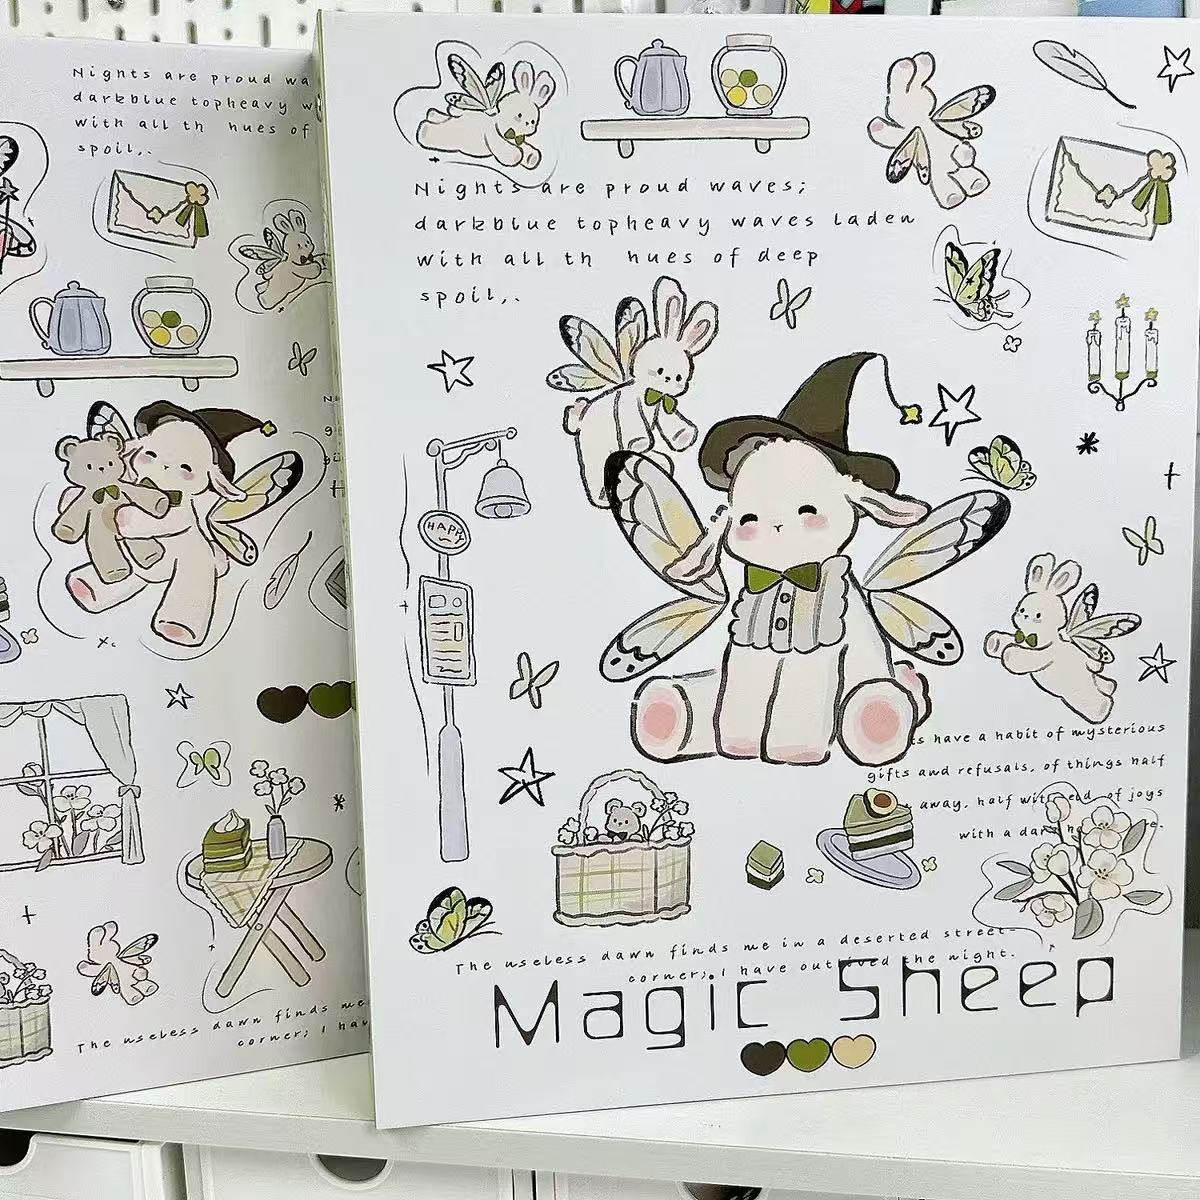 Nights are proud wa
darkblue topheavy w
with all th hues of
spoil,.
The useless dawn finds me
corner; I hav
Nights are proud waves;
darkblue topheavy waves laden
with all th hues of deep
spoil,.
HAPPY
ts have a habit of mysterious
gifts and refusals, of things half
away, half with end, of joys
with a dark
The useless dawn finds me in a deserted street-
corner; I have outlived the night.
Magic Sheep